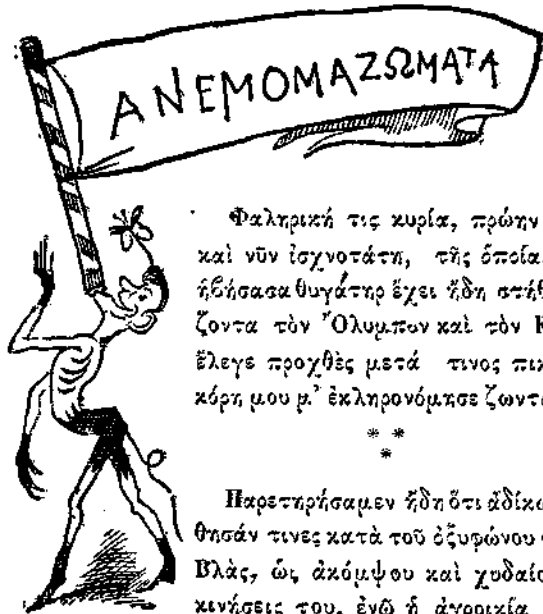 ΑΝΕΜΟΜΑΖΩΜΑΤΑ
Φαληρική τις κυρία, πρώην
καὶ νῦν ἰσχνοτάτη, τῆς ὁποία
ἡβήσασα θυγάτηρ ἔχει ἤδη στήθ
ζοντα τὸν Ὄλυμπον καὶ τὸν Κ
ἔλεγε προχθὲς μετά τινος πικ
κόρη μου μ' ἐκληρονόμησε ζωντ
* *
*
Παρετηρήσαμεν ἤδη ὅτι ἀδίκω
θησάν τινες κατὰ τοῦ ὀξυφώνου
Βλὰς, ὡς ἀκόμψου καὶ χυδαίο
κινήσεις του, ἐνῷ ἡ ἀγροικία